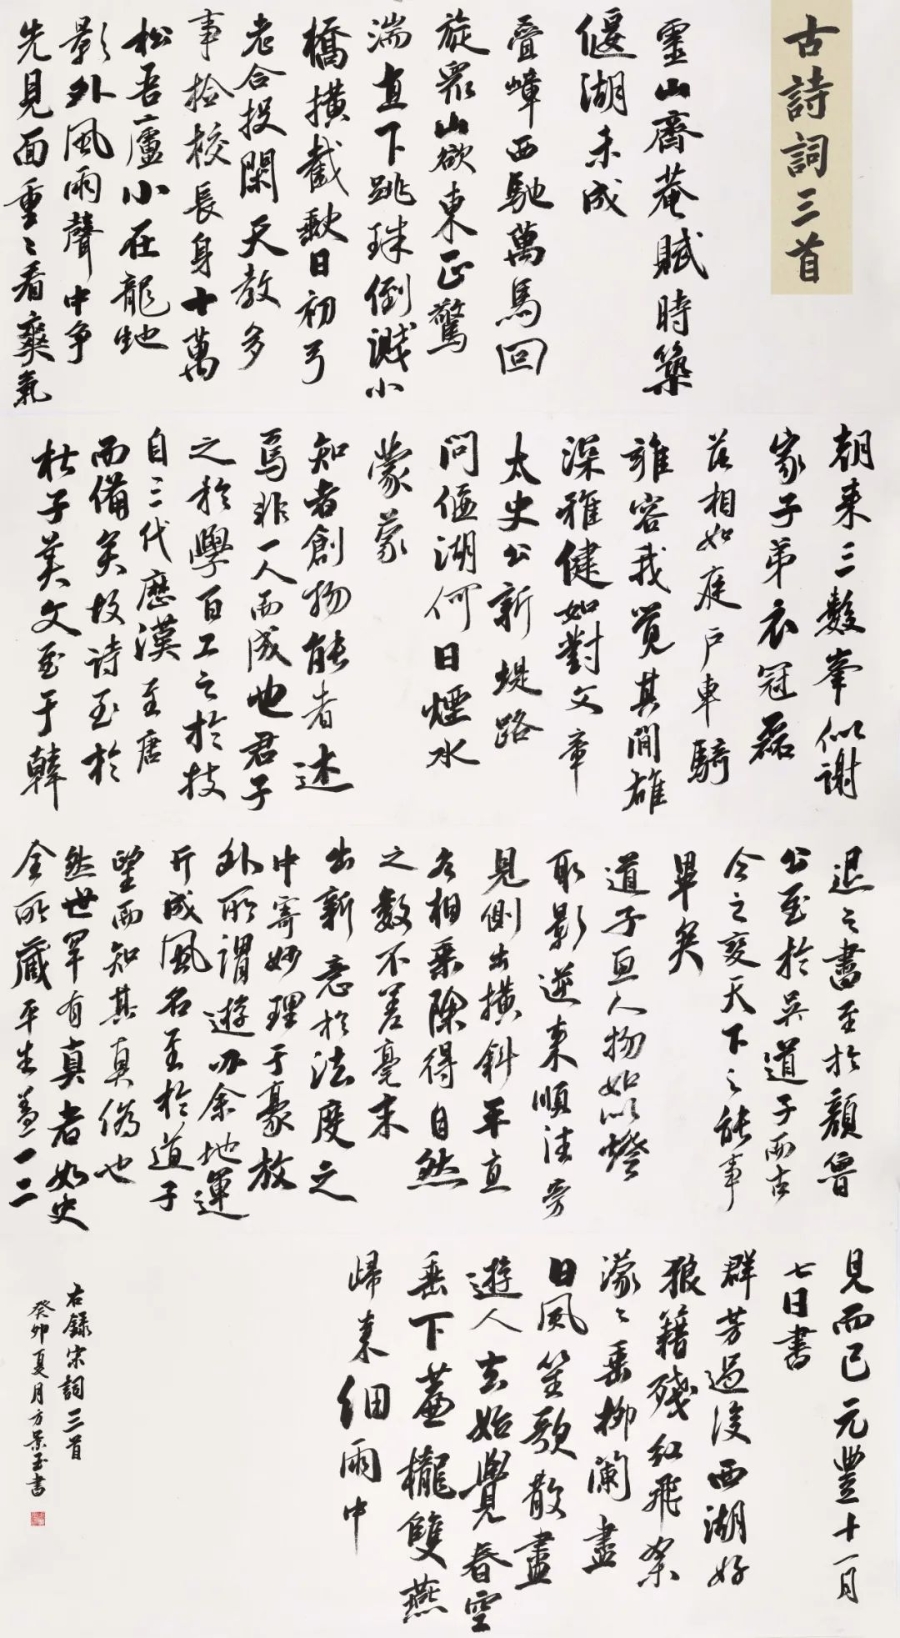 古詩詞三首
靈山齋菴賦時築
偃湖未成
疊嶂西馳萬馬回
旋眾山欲東正驚
湍直下跳珠倒濺小
橋橫截缺月初弓
老合投閑天教多
事檢校長身十萬
松吾廬小在龍蛇
影外風雨聲中爭
先見面重〻看爽氣
朝來三數峯似謝
家子弟衣冠磊
落相如庭戶車騎
雍容我覺其間雄
深雅健如對文章
太史公新堤路
問偃湖何日煙水
蒙蒙
知者創物能者述
焉非一人而成也君子
之於學百工之於技
自三代歷漢至唐
而備矣故詩至於
杜子美文至于韓
退之書至於顏魯
公至於吳道子而古
今之變天下之能事
畢矣
道子畫人物如以燈
取影逆來順往旁
見側出橫斜平直
各相乘除得自然
之數不差毫末
出新意於法度之
中寄妙理于豪放
外所謂遊刃余地運
斤成風名至於道子
望而知其真偽也
然世罕有真者如史
全所藏平生蓋一二
見而已元豐十一月
七日書
群芳過後西湖好
狼籍殘紅飛絮
濛〻垂柳闌盡
日風笙歌散盡
遊人去始覺春空
垂下簾櫳雙燕
歸來細雨中
右錄宋詞三首
癸卯夏月方景玉書